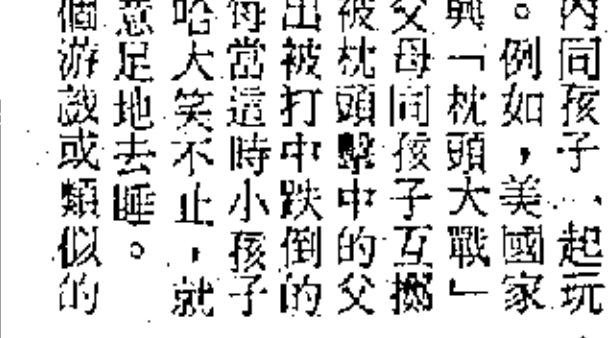 內同孩子一起玩
。例如，美國家
興「枕頭大戰」
父母同孩子互擲
被枕頭擊中的父
出被打中跌倒的
每當這時小孩子
哈大笑不止，就
意足地去睡。
個游戲或類似的